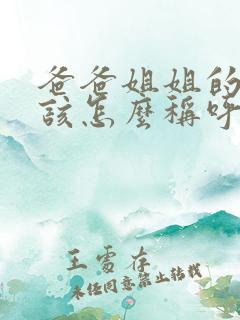 爸爸姐姐的
該怎麼稱呼
王雪存
未经同意禁止转载